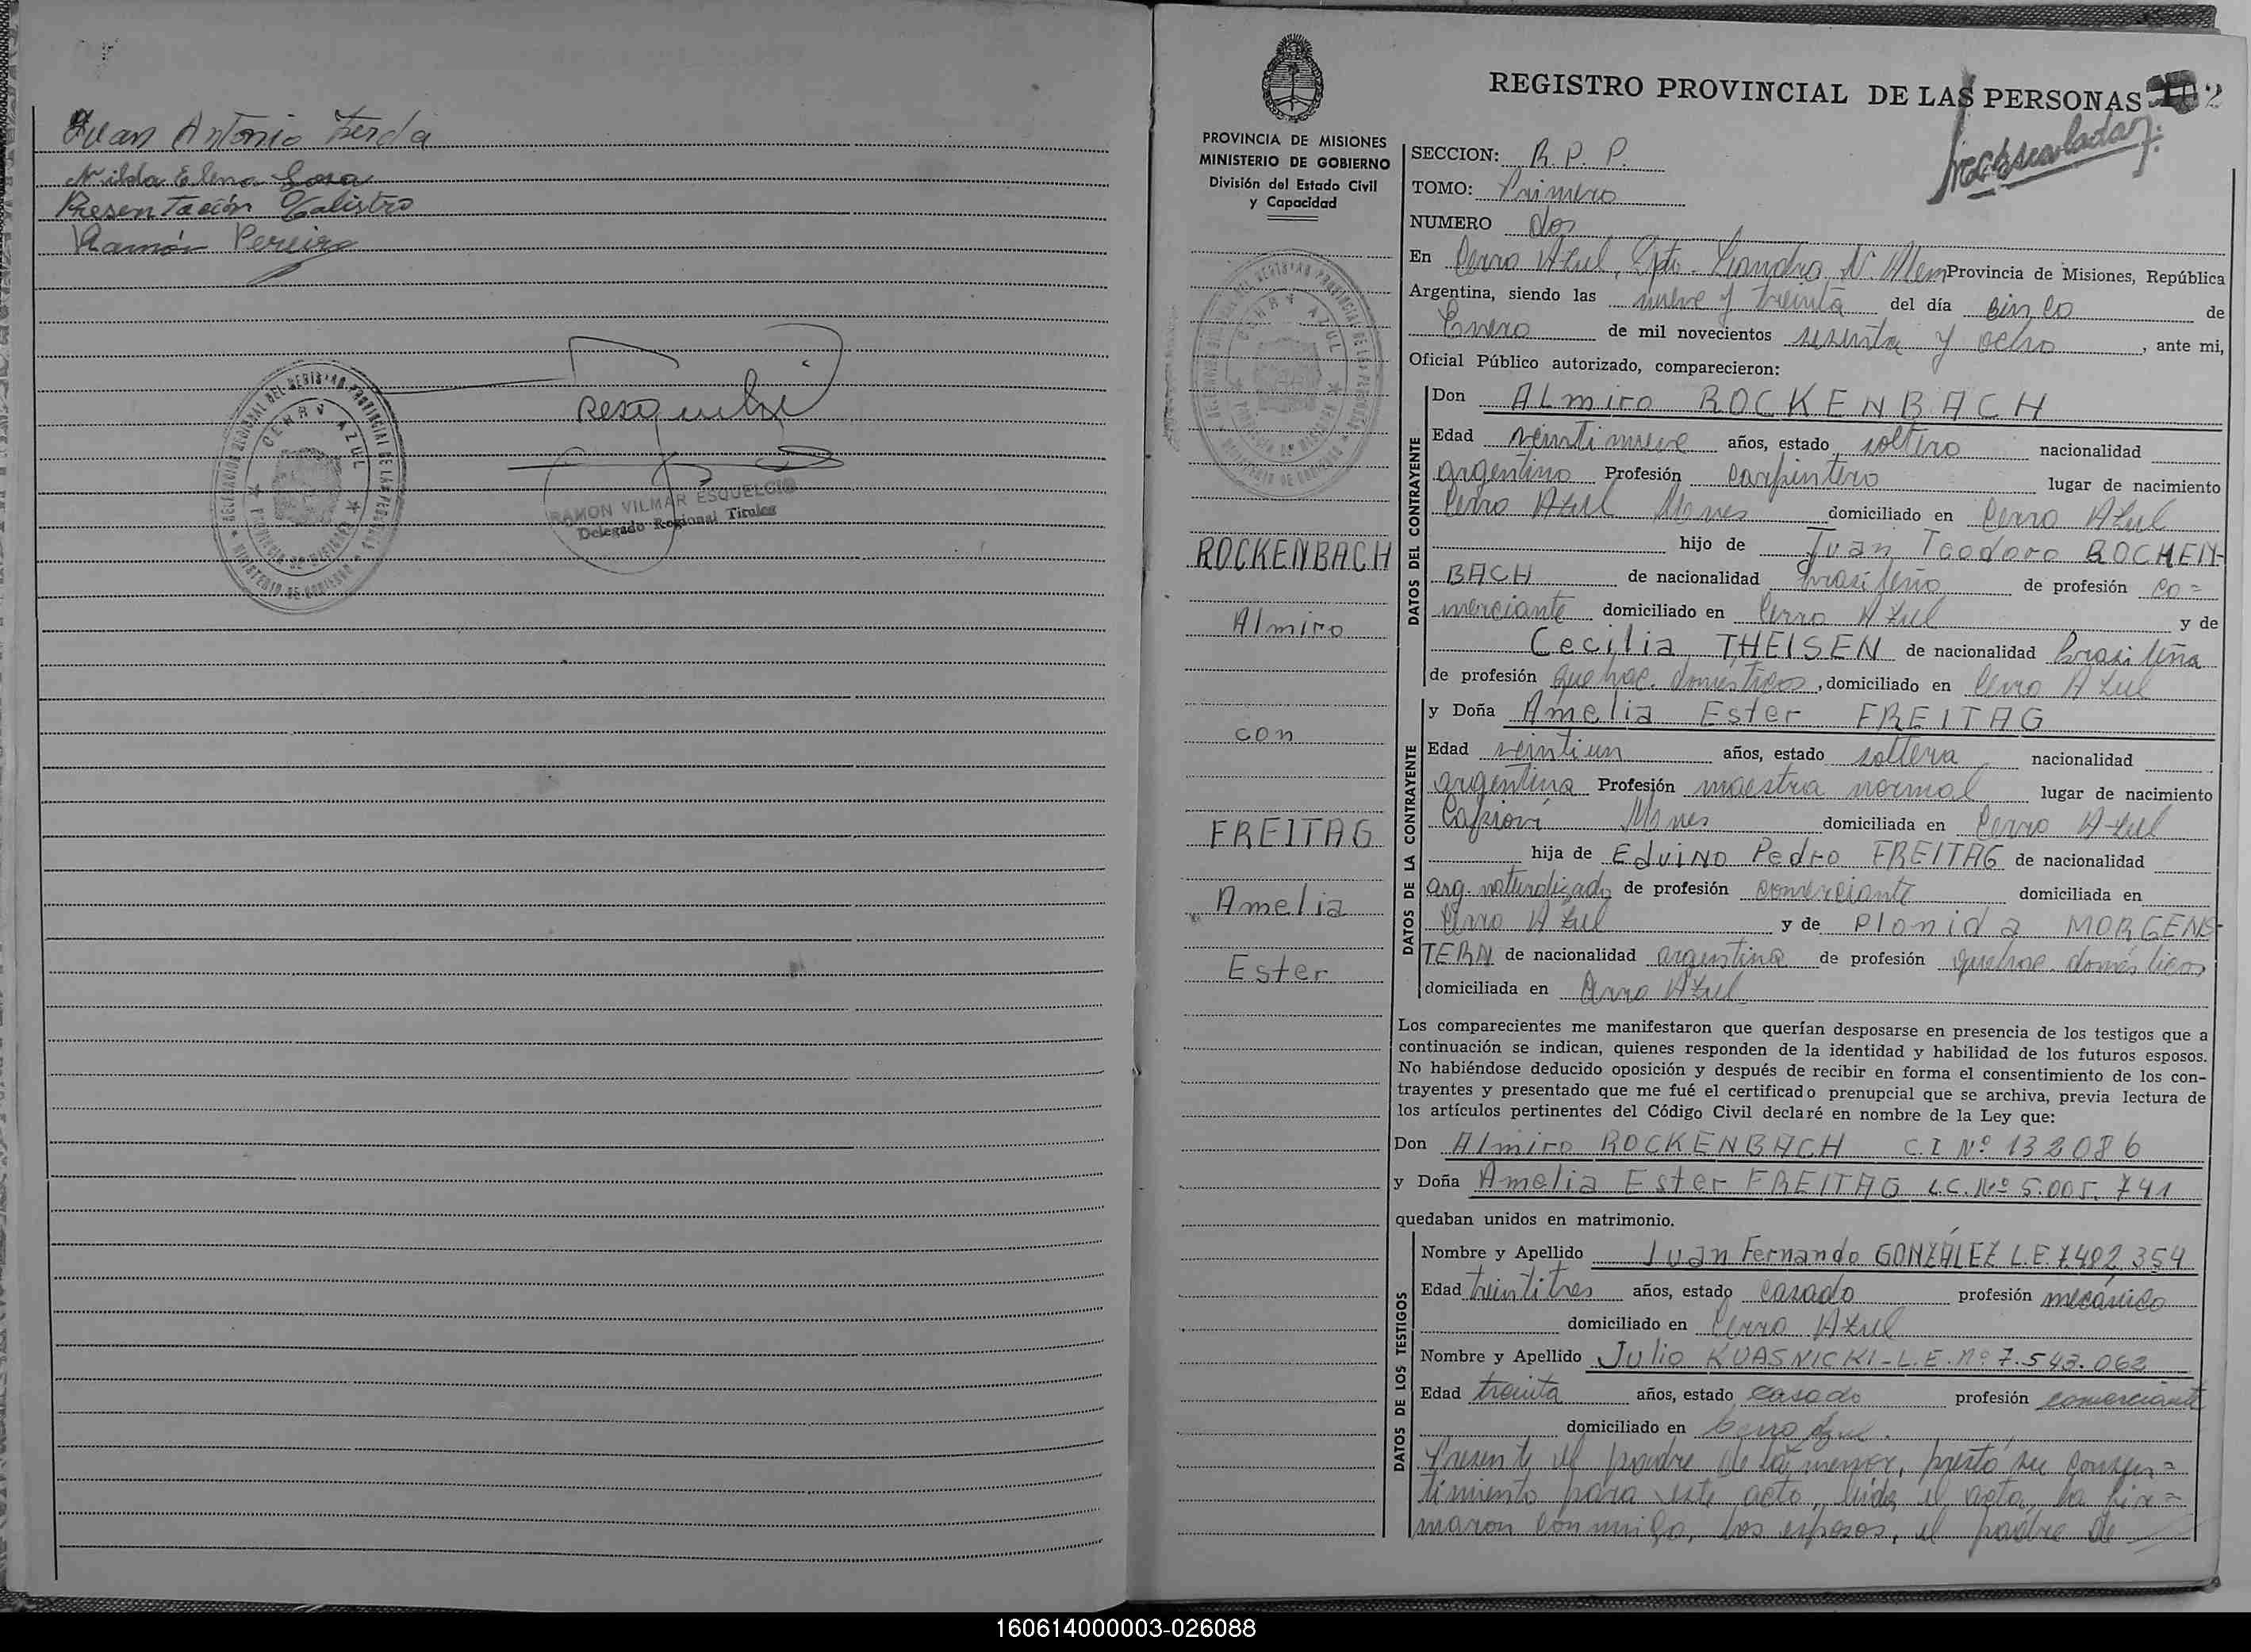 Juan Antonio Zerda
Nilda Elena Sosa
Presentación Calistro
Ramón Pereira
DELEGACION REGIONAL DEL REGISTRO PROVINCIAL DE LAS PERSONAS
CERRO AZUL
PROVINCIA DE MISIONES
MINISTERIO DE GOBIERNO
RAMON VILMAR ESQUELCIO
Delegado Regional Titular
REGISTRO PROVINCIAL DE LAS PERSONAS 2
PROVINCIA DE MISIONES
MINISTERIO DE GOBIERNO
División del Estado Civil
y Capacidad
ROCKENBACH
Almiro
con
FREITAG
Amelia
Ester
SECCION: R. P. P.
TOMO: Primero
NUMERO dos
En Cerro Azul, Dpto. Leandro N. Alem Provincia de Misiones, República
Argentina, siendo las nueve y treinta del día cinco de
Enero de mil novecientos sesenta y ocho, ante mi,
Oficial Público autorizado, comparecieron:
DATOS DEL CONTRAYENTE
Don Almiro ROCKENBACH
Edad veintinueve años, estado soltero nacionalidad
argentino Profesión carpintero lugar de nacimiento
Cerro Azul Mnes domiciliado en Cerro Azul
hijo de Juan Teodoro ROCKEN-
BACH de nacionalidad brasileño de profesión co=
merciante domiciliado en Cerro Azul y de
Cecilia THEISEN de nacionalidad Brasileña
de profesión quehac. domésticos, domiciliado en Cerro Azul
DATOS DE LA CONTRAYENTE
y Doña Amelia Ester FREITAG
Edad veintiun años, estado soltera nacionalidad
argentina Profesión maestra normal lugar de nacimiento
Capioví Mnes domiciliada en Cerro Azul
hija de Eduino Pedro FREITAG de nacionalidad
arg. naturalizado de profesión comerciante domiciliada en
Cerro Azul y de Plonida MORGENS-
TERN de nacionalidad argentina de profesión quehac. domésticos
domiciliada en Cerro Azul
Los comparecientes me manifestaron que querían desposarse en presencia de los testigos que a
continuación se indican, quienes responden de la identidad y habilidad de los futuros esposos.
No habiéndose deducido oposición y después de recibir en forma el consentimiento de los con-
trayentes y presentado que me fué el certificado prenupcial que se archiva, previa lectura de
los artículos pertinentes del Código Civil declaré en nombre de la Ley que:
Don Almiro ROCKENBACH C.I Nº 132086
y Doña Amelia Ester FREITAG L.C. Nº 5.005.741
quedaban unidos en matrimonio.
DATOS DE LOS TESTIGOS
Nombre y Apellido Juan Fernando GONZÁLEZ L.E. 7.482.354
Edad treintitres años, estado casado profesión mecánico
domiciliado en Cerro Azul
Nombre y Apellido Julio KUASNICKI - L.E. nº 7.543.062
Edad treinta años, estado casado profesión comerciante
domiciliado en Cerro Azul.
Presente el padre de la menor, prestó su consen=
timiento para este acto, leída el acta, la fir=
maron conmigo, los esposos, el padre de
160614000003-026088